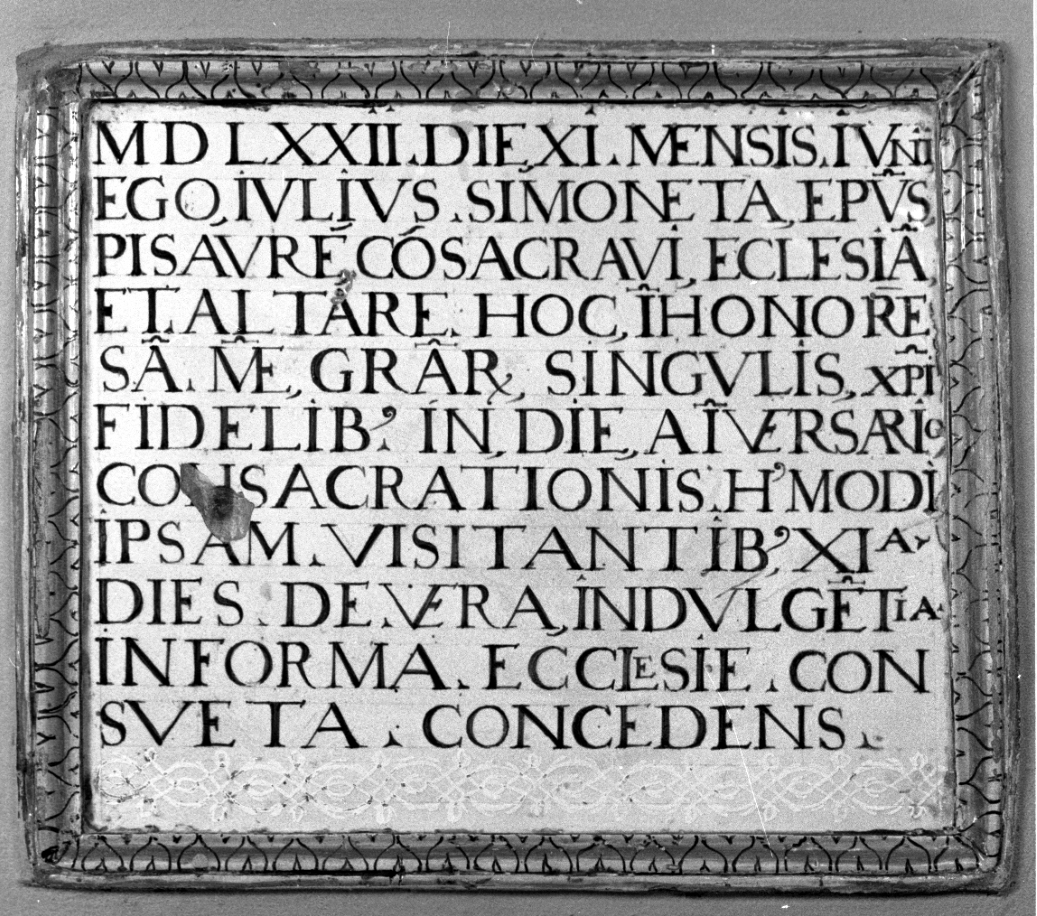 MDLXXII. DIE, XI. MENSIS. IVNĪ
EGO, IVLIVS. SIMONETA, EPV̄S,
PISAVRĒ, CŌSACRAVI, ECLESIĀ
ET. ALTARE. HOC, ĪHONORE
SĀ. M̄E, GRĀR℞, SINGVLIS, XP̄I
FIDELIB', IN, DIE, AĪVERSARIO
CONSACRATIONIS. H'MODI
IPSAM. VISITANTIB', XLᴬ
DIES. DE. VERA, INDVLGĒTIA
INFORMA. ECCLESIE. CON
SVETA. CONCEDENS.